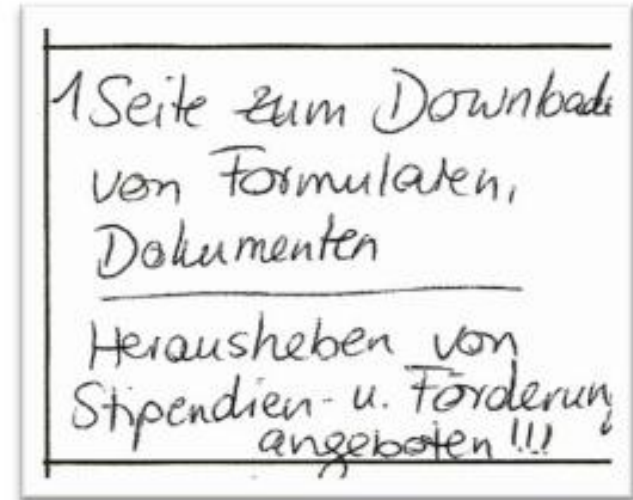 1 Seite zum Downloade
von Formularen,
Dokumenten
Herausheben von
Stipendien- u. Förderung
angeboten!!!